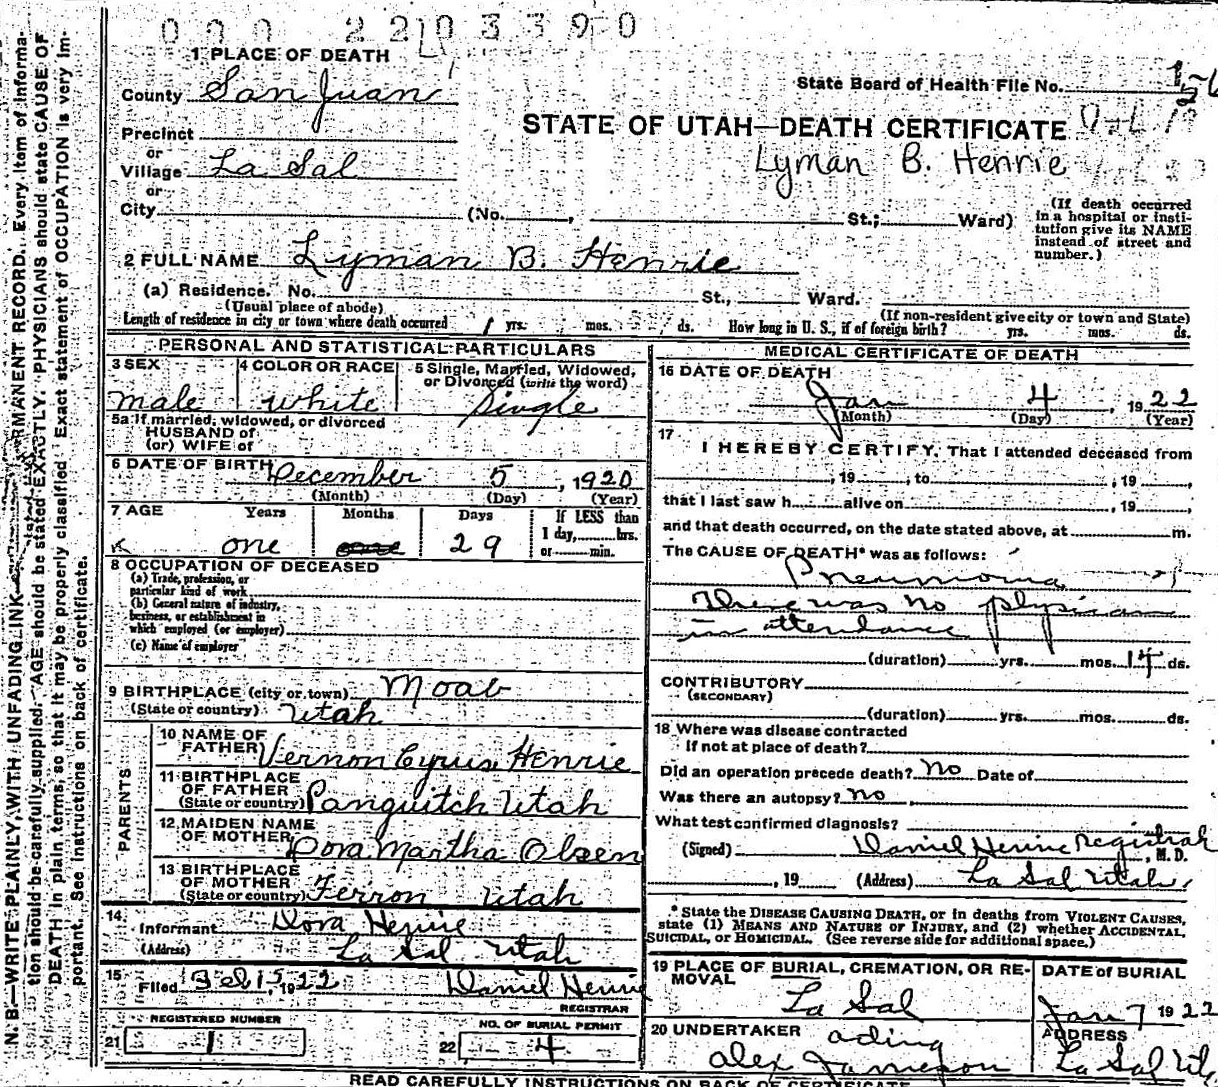 0 0 0 2 2 0 3 3 9 0
1 PLACE OF DEATH
County San Juan
State Board of Health File No.
Precinct
or
STATE OF UTAH—DEATH CERTIFICATE
Village La Sal
Lyman B. Henrie
or
City (No. , St.; Ward)
(If death occurred in a hospital or institution give its NAME instead of street and number.)
2 FULL NAME Lyman B. Henrie
(a) Residence. No. St., Ward.
(Usual place of abode) (If non-resident give city or town and State)
Length of residence in city or town where death occurred 1 yrs. mos. ds. How long in U. S., if of foreign birth? yrs. mos. ds.
PERSONAL AND STATISTICAL PARTICULARS
3 SEX male
4 COLOR OR RACE white
5 Single, Married, Widowed, or Divorced (write the word) Single
5a If married, widowed, or divorced
HUSBAND of
(or) WIFE of
6 DATE OF BIRTH December 5, 1920
(Month) (Day) (Year)
7 AGE Years Months Days If LESS than
1 day, hrs.
one 29 or min.
8 OCCUPATION OF DECEASED
(a) Trade, profession, or
particular kind of work
(b) General nature of industry,
business, or establishment in
which employed (or employer)
(c) Name of employer
9 BIRTHPLACE (city or town) Moab
(State or country) Utah
PARENTS
10 NAME OF
FATHER Vernon Cyrus Henrie
11 BIRTHPLACE
OF FATHER
(State or country) Panguitch Utah
12 MAIDEN NAME
OF MOTHER Dora Martha Olsen
13 BIRTHPLACE
OF MOTHER
(State or country) Ferron Utah
14
Informant Dora Henrie
(Address) La Sal Utah
15
Filed Feb 15, 1922 Daniel Henrie
REGISTRAR
REGISTERED NUMBER
21 1
NO. OF BURIAL PERMIT
22 4
MEDICAL CERTIFICATE OF DEATH
16 DATE OF DEATH
Jan 4, 1922
(Month) (Day) (Year)
17
I HEREBY CERTIFY, That I attended deceased from
, 19 , to , 19 ,
that I last saw h alive on , 19 ,
and that death occurred, on the date stated above, at m.
The CAUSE OF DEATH* was as follows:
Pneumonia
There was no physician
in attendance
(duration) yrs. mos. 14 ds.
CONTRIBUTORY
(SECONDARY)
(duration) yrs. mos. ds.
18 Where was disease contracted
If not at place of death?
Did an operation precede death? no Date of
Was there an autopsy? no
What test confirmed diagnosis?
(Signed) Daniel Henrie Registrar, M.D.
, 19 (Address) La Sal Utah
* State the DISEASE CAUSING DEATH, or in deaths from VIOLENT CAUSES,
state (1) MEANS AND NATURE OF INJURY, and (2) whether ACCIDENTAL,
SUICIDAL, or HOMICIDAL. (See reverse side for additional space.)
19 PLACE OF BURIAL, CREMATION, OR REMOVAL
La Sal
DATE of BURIAL
Jan 7 1922
20 UNDERTAKER acting
Alex Jameson
ADDRESS
La Sal Ut
READ CAREFULLY INSTRUCTIONS ON BACK OF CERTIFICATE
N. B.—WRITE PLAINLY, WITH UNFADING INK— PERMANENT RECORD. Every item of informa-
tion should be carefully supplied. AGE should be stated EXACTLY. PHYSICIANS should state CAUSE OF
DEATH in plain terms, so that it may be properly classified. Exact statement of OCCUPATION is very im-
portant. See instructions on back of certificate.